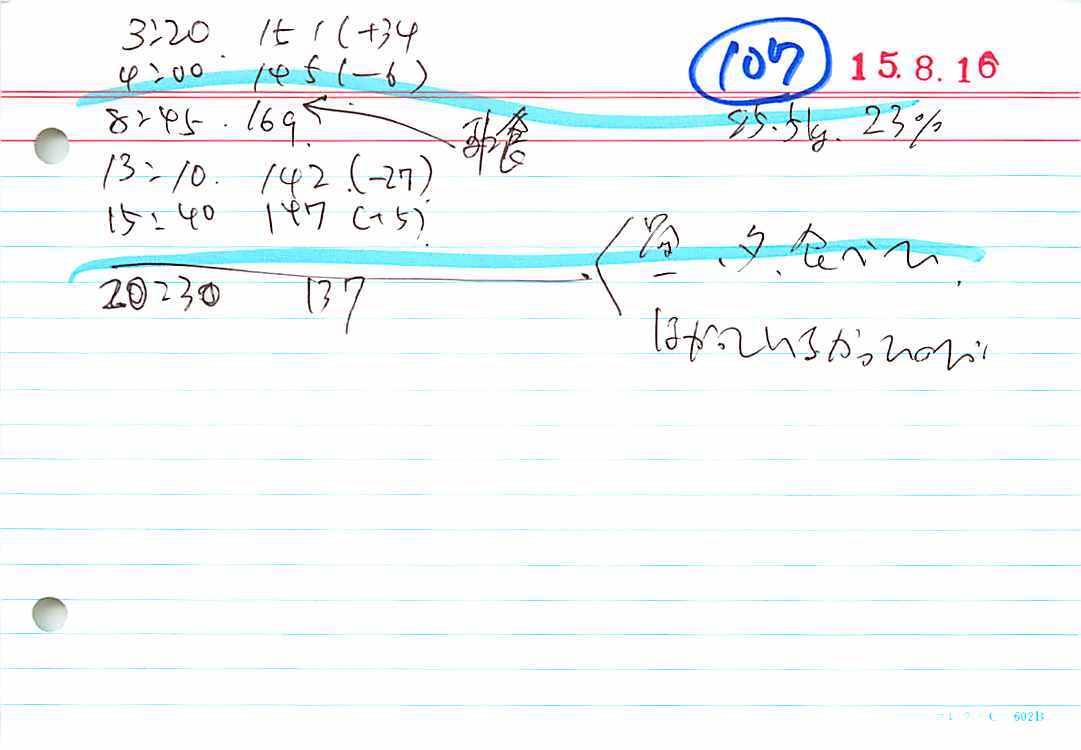 3:20 151 (+34
4:00 145 (-6)
107
15.8.16
8:45 169
85.5kg. 23%
13:10. 142 (-27)
15:40 147 (+5)
夕、食べて、
20:30 137
はかっているからなのか
602B